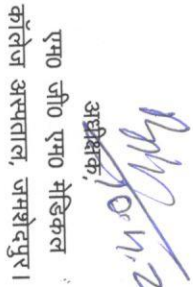 अधीक्षक,
एम० जी० एम० मेडिकल
कॉलेज अस्पताल, जमशेदपुर।